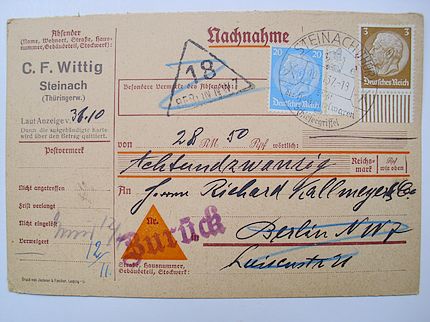 Absender
(Name, Wohnort, Straße, Haus-
nummer, Gebäudeteil, Stockwerk):
C. F. Wittig
Steinach
(Thüringerw.)
Laut Anzeige v.
Durch die beigebündigte Karte
wird über den Betrag quittiert.
Postvermerk
Nicht angetroffen
Frist verlangt
Nicht eingelöst
Verweigert
12/11.
Nachnahme
Besondere Vermerke des Absenders:
18
BERLIN NW 7
STEINACH
20
20
Deutsches Reich
3
3
Deutsches Reich
von 28 RM 50 Rpf wörtlich:
Achtundzwanzig
Reichs-
mark
Rpf
wie oben
An Herrn Richard Kallmeyer & Co
Nr.
Zurück
Berlin NW7
Luisenstr 21
Straße, Hausnummer,
Gebäudeteil, Stockwerk: